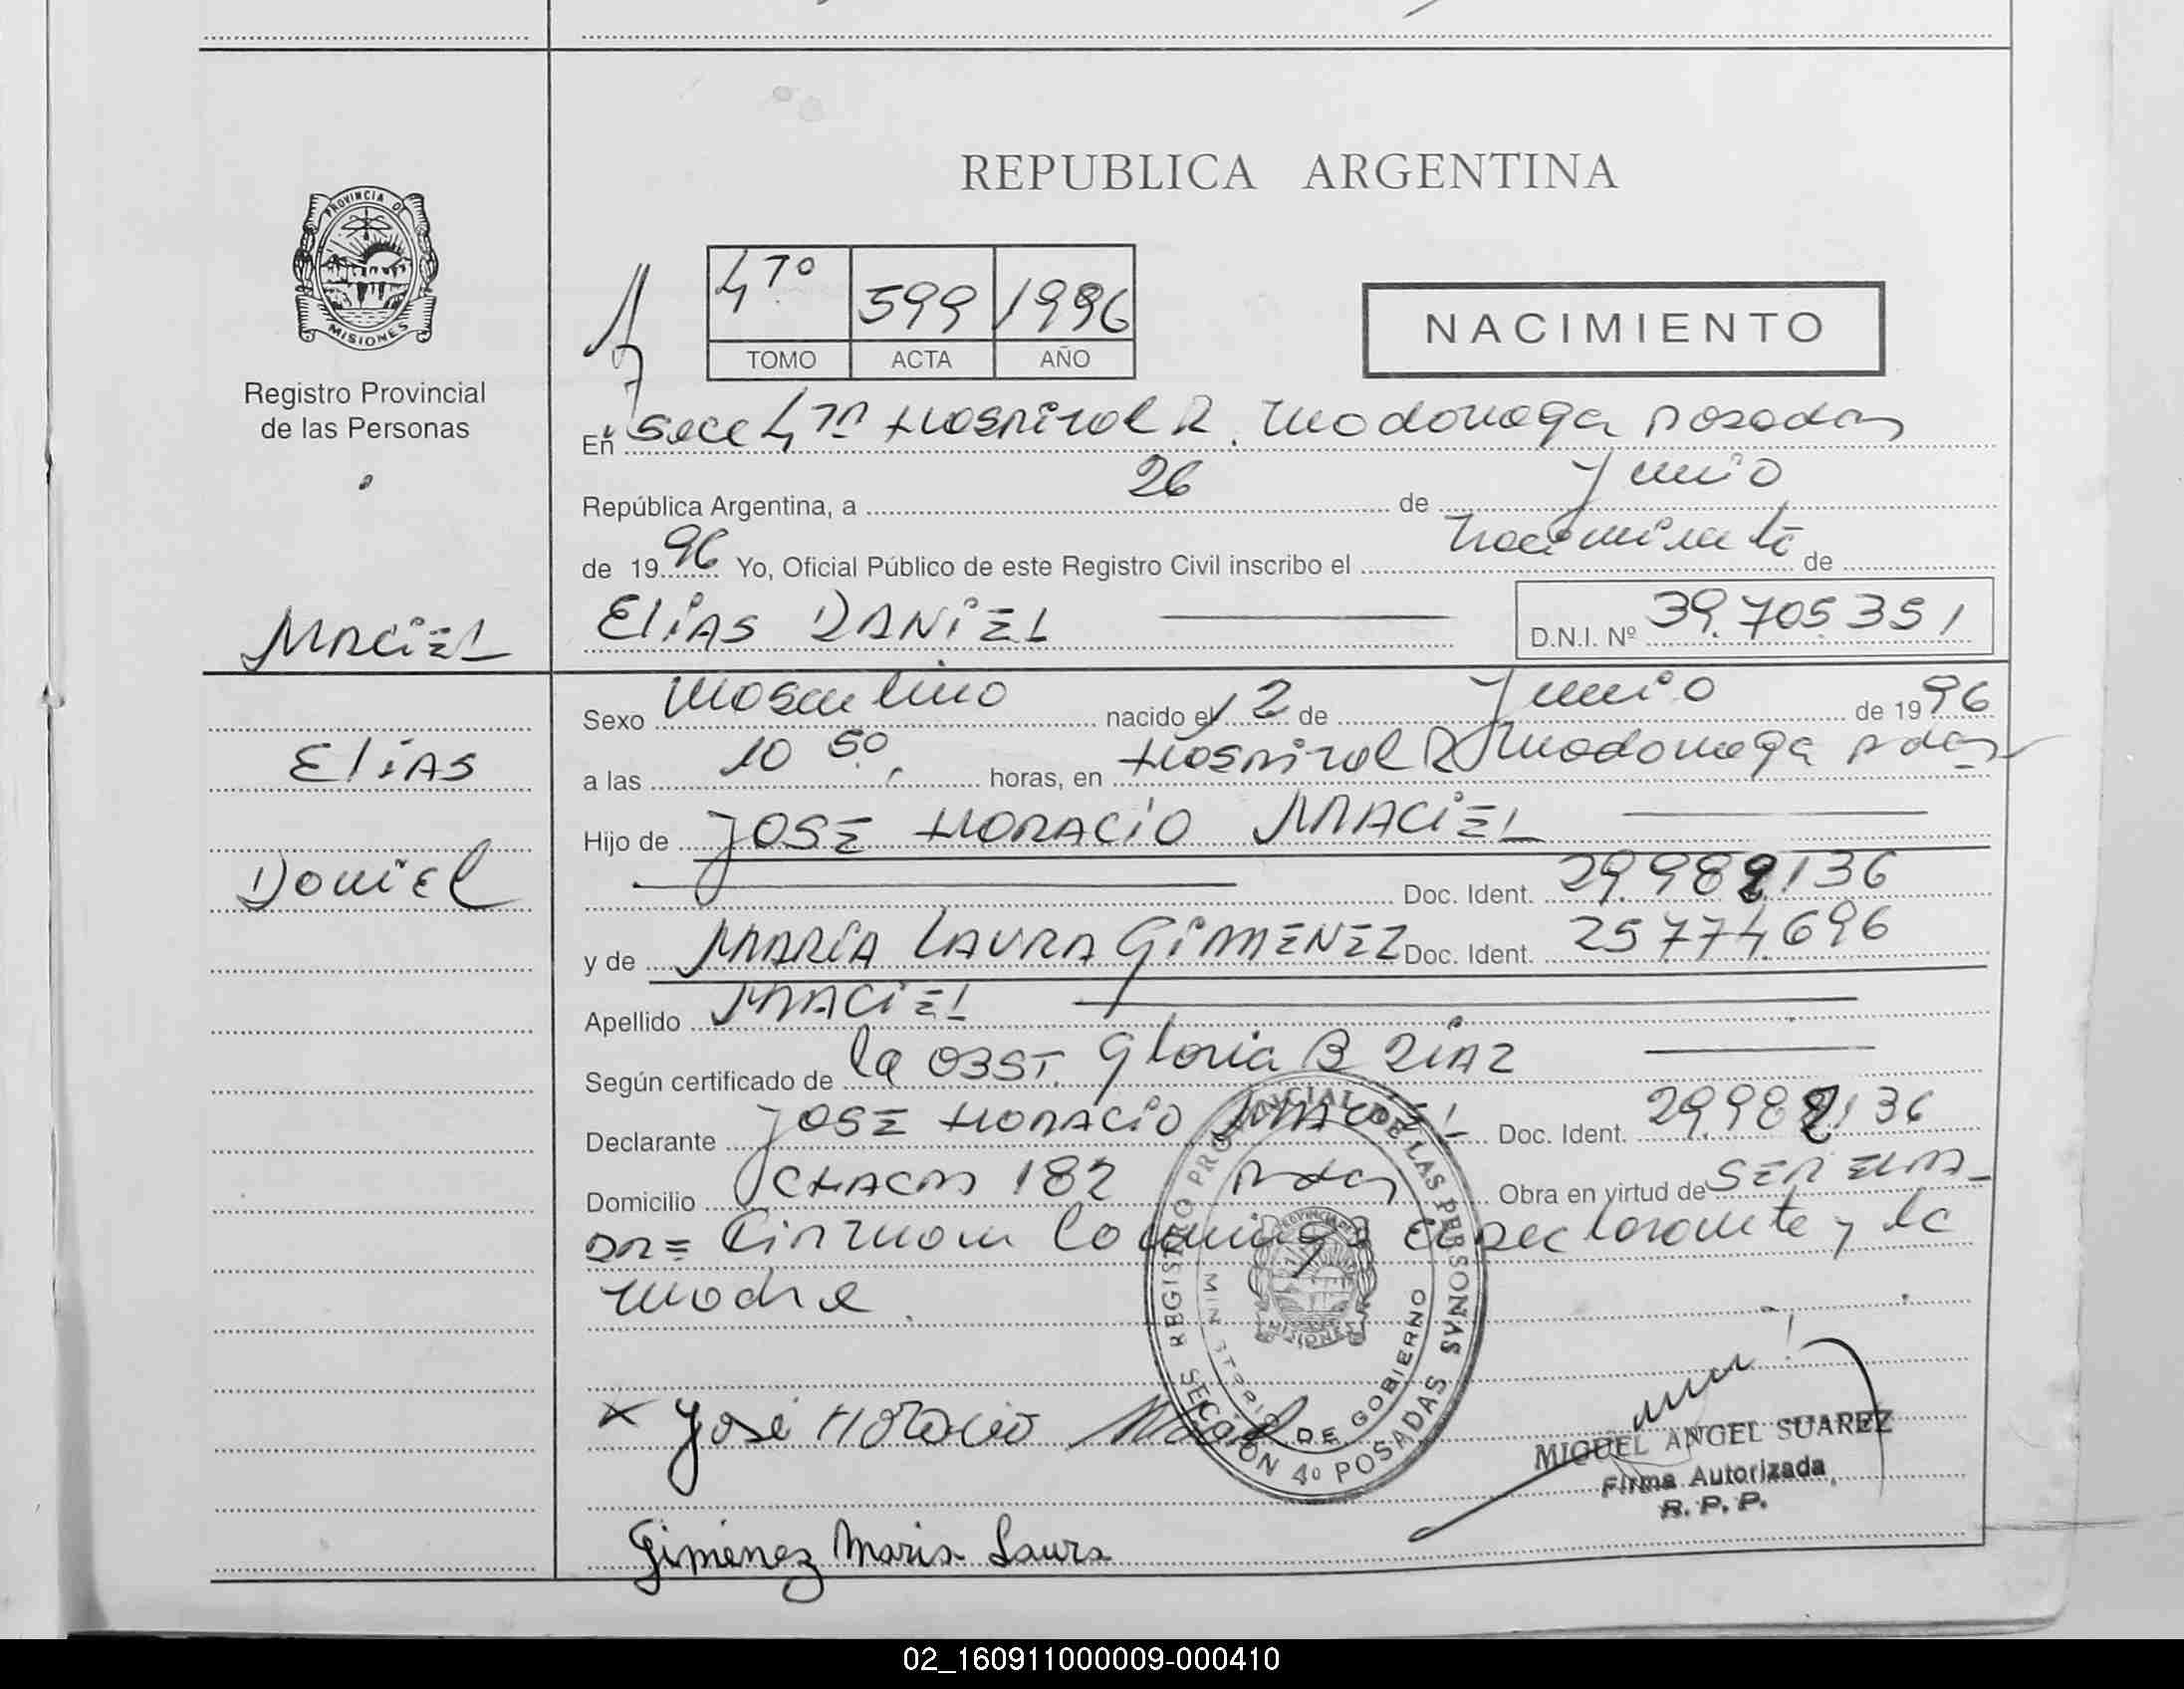 REPUBLICA ARGENTINA
PROVINCIA DE
MISIONES
Registro Provincial
de las Personas
4,7º 599 1996
TOMO ACTA AÑO
NACIMIENTO
En Secc 4,7ª Hospital R. Madariaga Posadas
República Argentina, a 26 de Junio
de 1996 Yo, Oficial Público de este Registro Civil inscribo el Nacimiento de
MACIEL
ELIAS DANIEL D.N.I. Nº 39.705351
Sexo Masculino nacido el 12 de Junio de 1996
ELIAS
a las 10 50, horas, en Hospital R Madariaga Pdas
Hijo de JOSE HORACIO MACIEL
Daniel
Doc. Ident. 29.982136
y de MARIA LAURA GIMENEZ Doc. Ident. 25774696
Apellido MACIEL
Según certificado de la OBST. Gloria B DIAZ
Declarante JOSE HORACIO MACIEL Doc. Ident. 29.982136
Domicilio CHACO 182 Pdas Obra en virtud de SER EL PA-
DRE Firman Conmigo el Declarante y la
Madre.
REGISTRO PROVINCIAL DE LAS PERSONAS
MINISTERIO DE GOBIERNO
PROVINCIA DE
MISIONES
SECCIÓN 4º POSADAS
x José Horacio Maciel
MIGUEL ANGEL SUAREZ
Firma Autorizada
R. P. P.
Gimenez Maria Laura
02_160911000009-000410